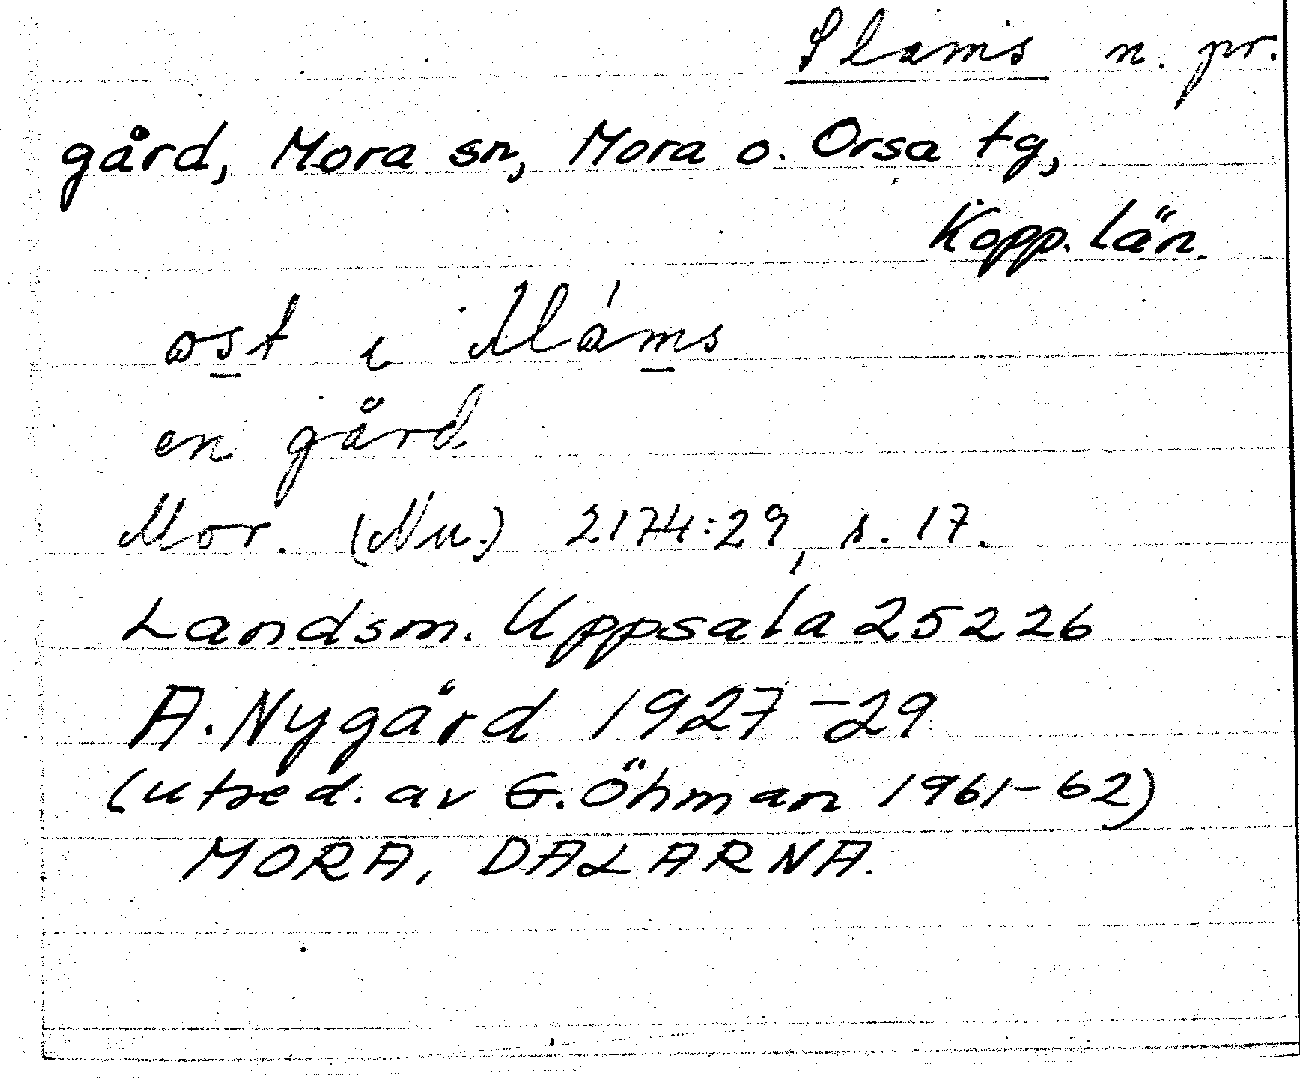 Slams n. pr.
gård, Mora sn, Mora o. Orsa tg,
Kopp. län.
ost i
en gård
Mor. (Nu.) 2174:29, s. 17.
Landsm. Uppsala 25226
A. Nygård 1927-29
(utred. av G. Öhman 1961-62)
MORA, DALARNA.